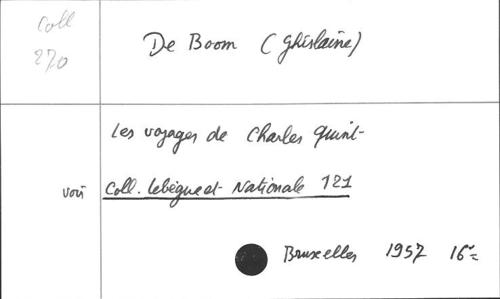 Coll
270
De Boom (Ghislaine)
Les voyages de Charles Quint-
voir Coll. Lebègue et Nationale 121
Bruxelles 1957 16°=